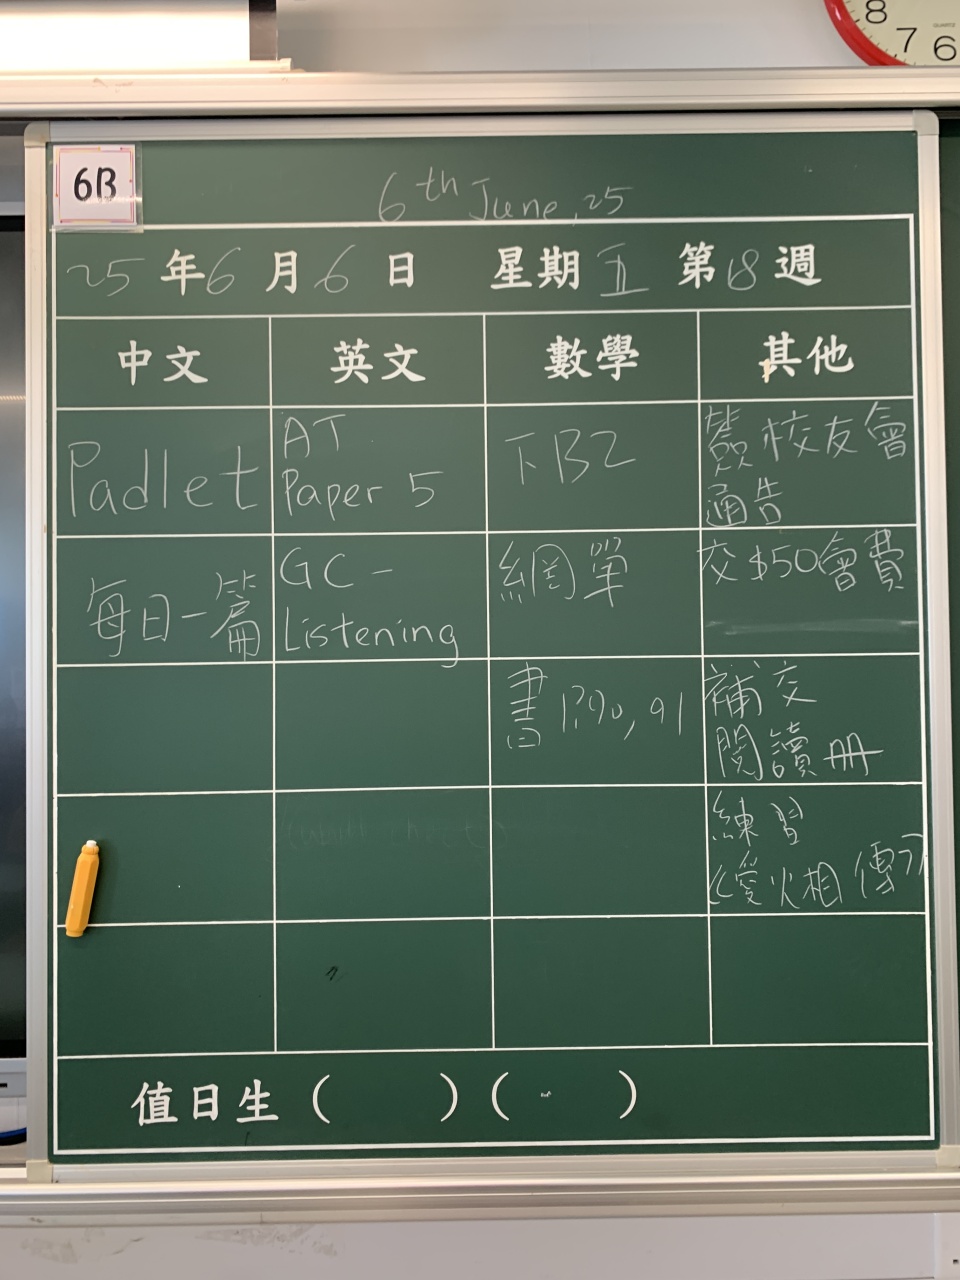 8
7
6
QUARTZ
6B
6th June, 25
25年6月6日 星期五 第18週
中文 英文 數學 其他
Padlet
AT
Paper 5
下B2
簽校友會
通告
每日一篇
GC -
Listening
網單
交$50會費
書P.90, 91
補交
閱讀冊
練習
《愛火相傳》
值日生( )( )